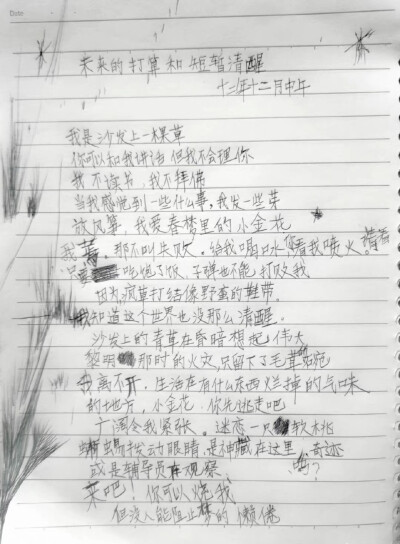 Date
未来的打算和短暂清醒
十三年十二月中午
我是沙发上一棵草
你可以和我讲话 但我不会理你
我不读书,我不拜佛
当我感觉到一些什么事,我发一些芽
放风筝,我爱春梦里的小金花
我 那不叫失败,给我喝口水你看我喷火。
只要 吃饱了饭、子弹也不能打败我
因为疯草打结像野蛮的鞋带.
我知道这个世界也没那么清醒。
沙发上的青草在昏暗想起伟大
黎明 那时的火灾,只留下了毛茸茸
我离不开,生活在有什么东西烂掉的气味
的地方,小金花.你先逃走吧
广阔令我紧张、迷恋一只软桃
蜥蜴拨动眼睛.是神藏在这里、奇迹
或是辅导员在观察 吗?
来吧!你可以烧我
但没人能阻止梦的懒倦